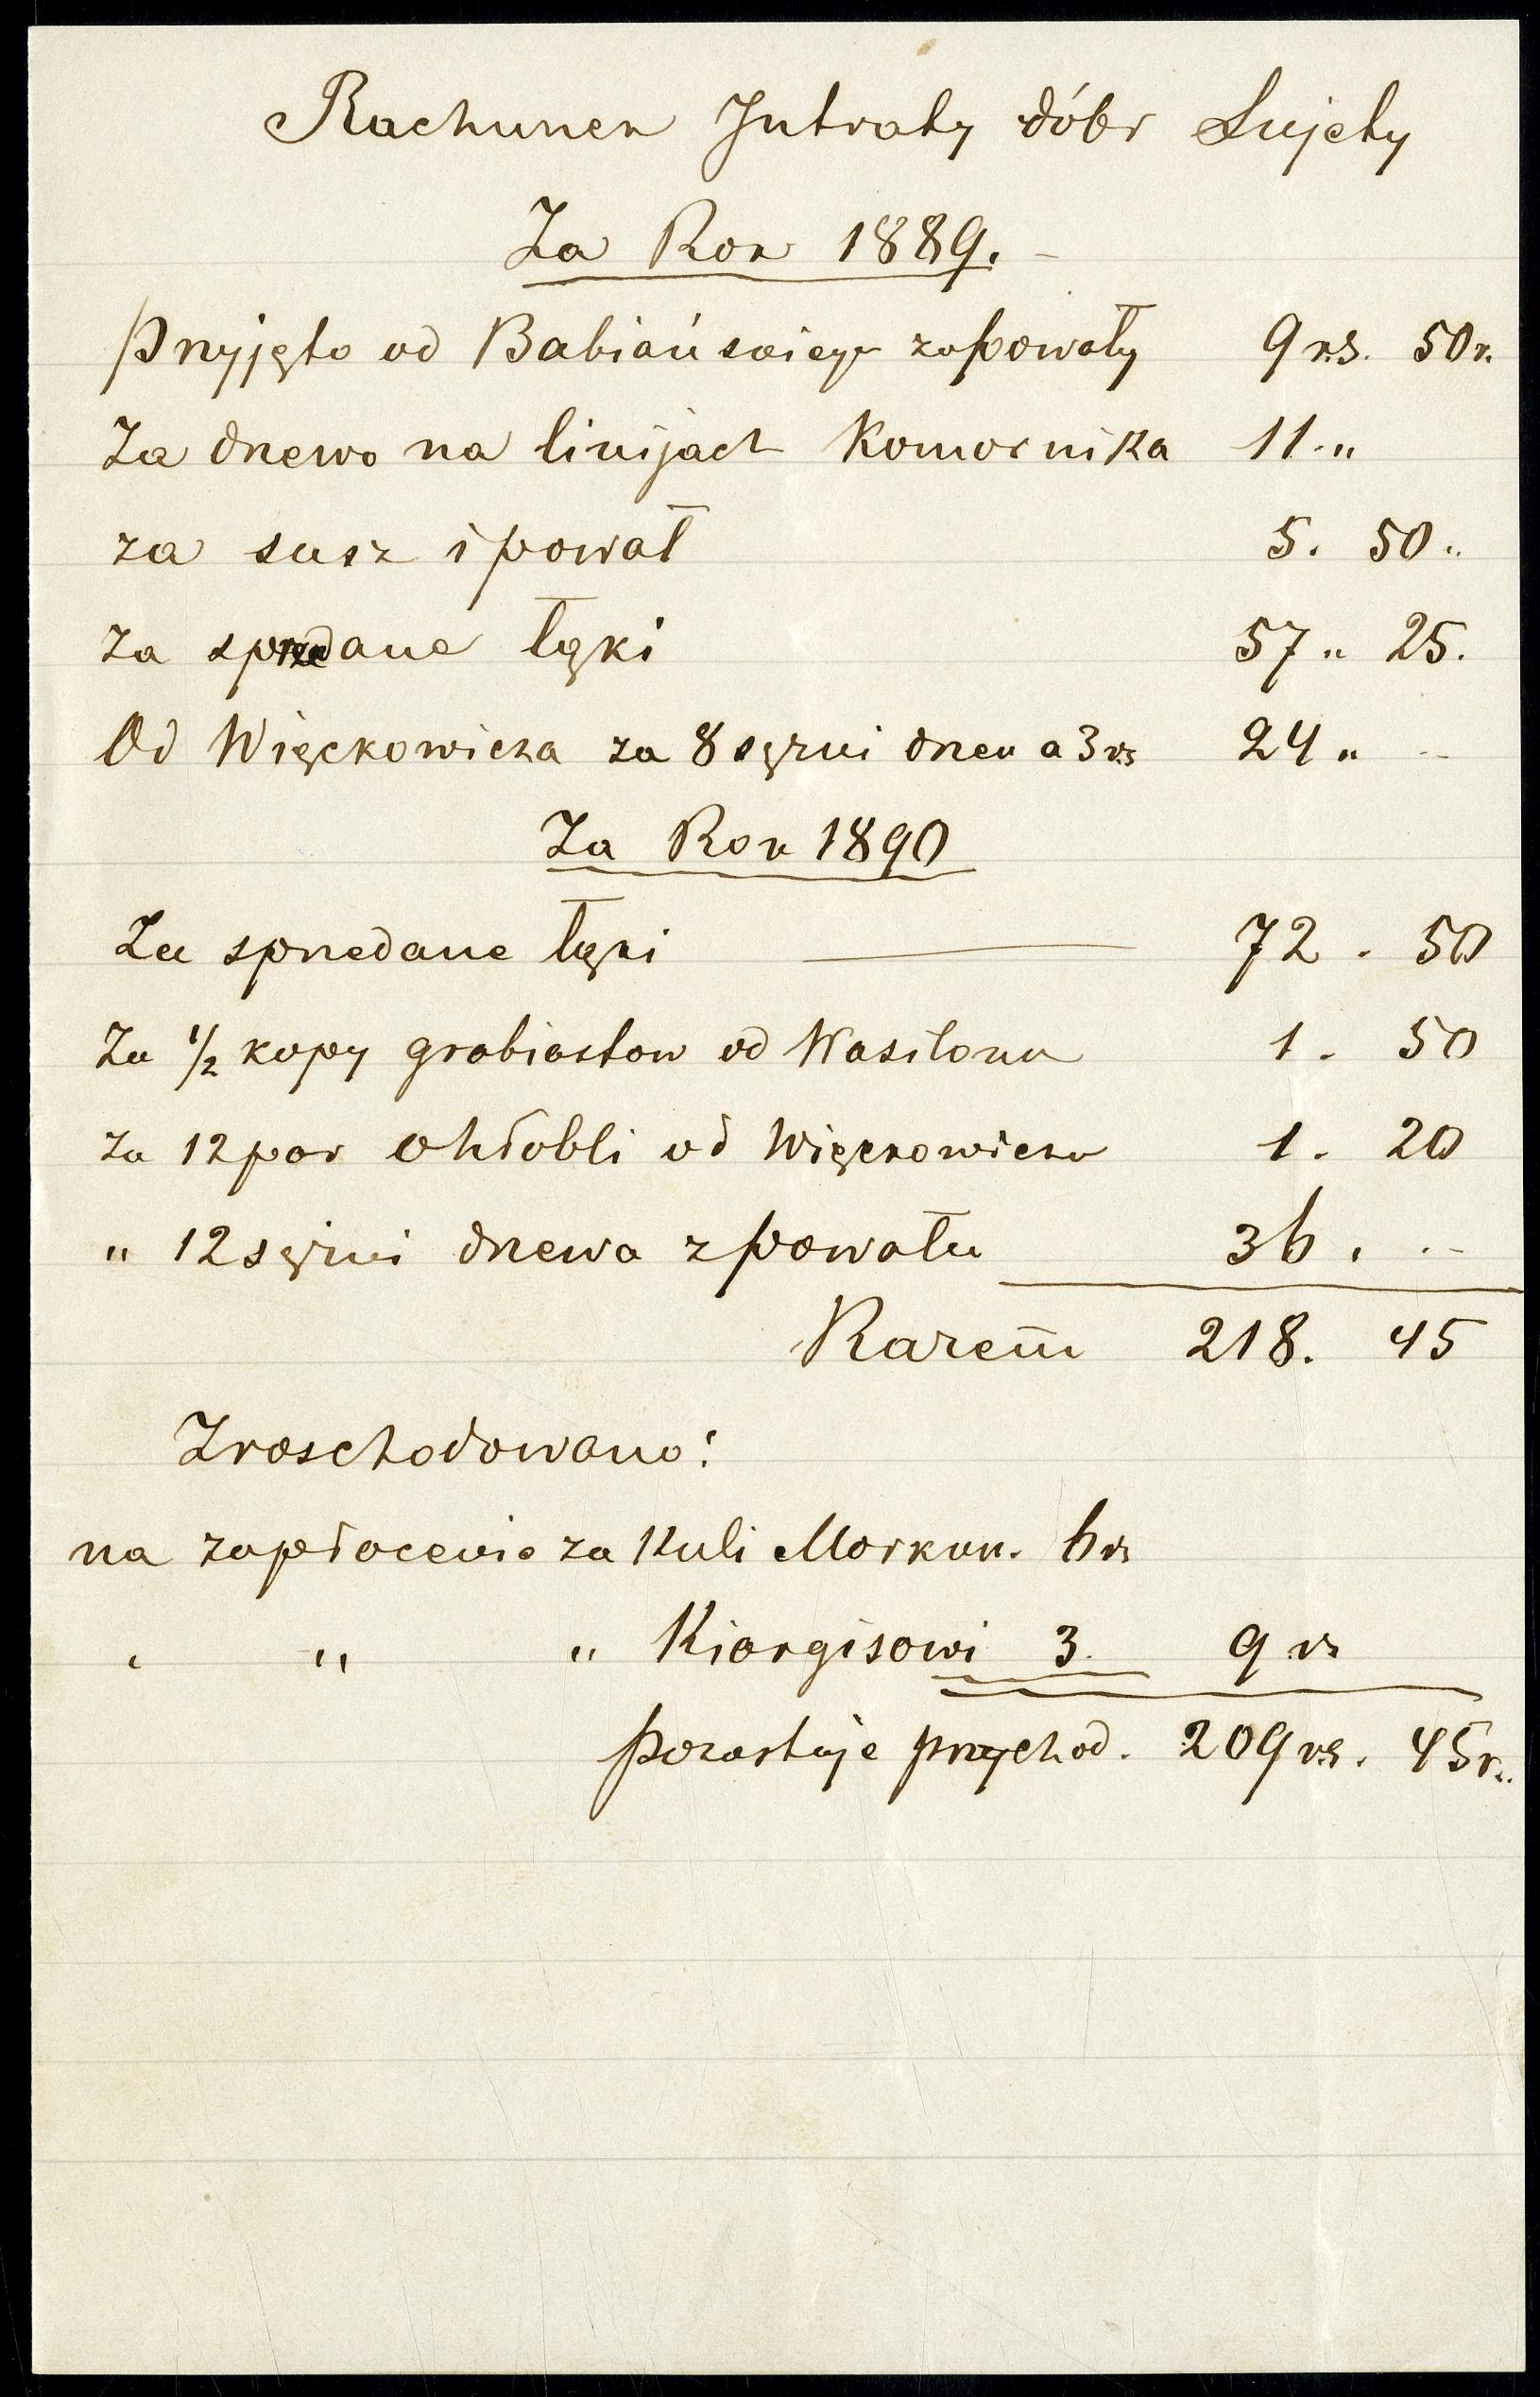 Rachunek Intraty dóbr Sujety
Za Rok 1889. -
Przyjęto od Babiańskiego za powały 9 rs. 50 k.
Za drzewo na linijach Komornika 11. "
za susz i pował 5. 50 "
Za sprzedane łąki 57 " 25.
Od Więckowicza za 8 sężni drzew a 3 rs 24 " -
Za Rok 1890
Za sprzedane łąki — 72 . 50
Za 1/2 kopy grabiastow od Wasilona 1 . 50
za 12 par ohłobli od Więckowicza 1 . 20
" 12 sężni drzewa z powału 36 . -
Razem 218. 45
Zroschodowano:
na zapłocenie za Kuli Morkun. 6 rs
" " " Kiorgisowi 3. 9 rs
Pozostaje przychod. 209 rs. 45 k.